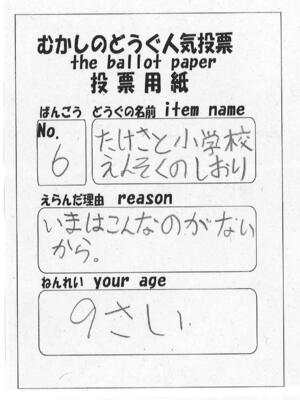 むかしのどうぐ人気投票
the ballot paper
投票用紙
ばんごう どうぐの名前 item name
No.
6
たけさと小学校
えんそくのしおり
えらんだ理由 reason
いまはこんなのがない
から。
ねんれい your age
9さい